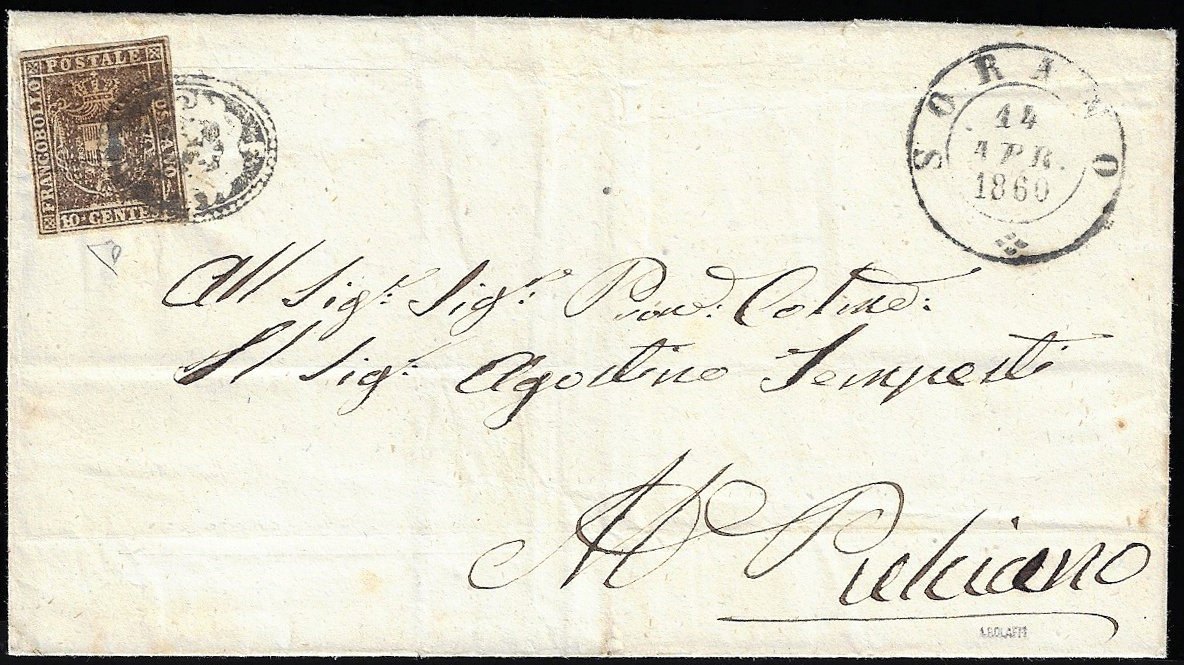 FRANCOBOLLO POSTALE TOSCANO
10 CENTES
SORANO
14
APR.
1860
All Sigr. Sigr. Pron. Colmo:
Il Sigr. Agostino Tempesti
M Pulciano
A.BOLAFFI